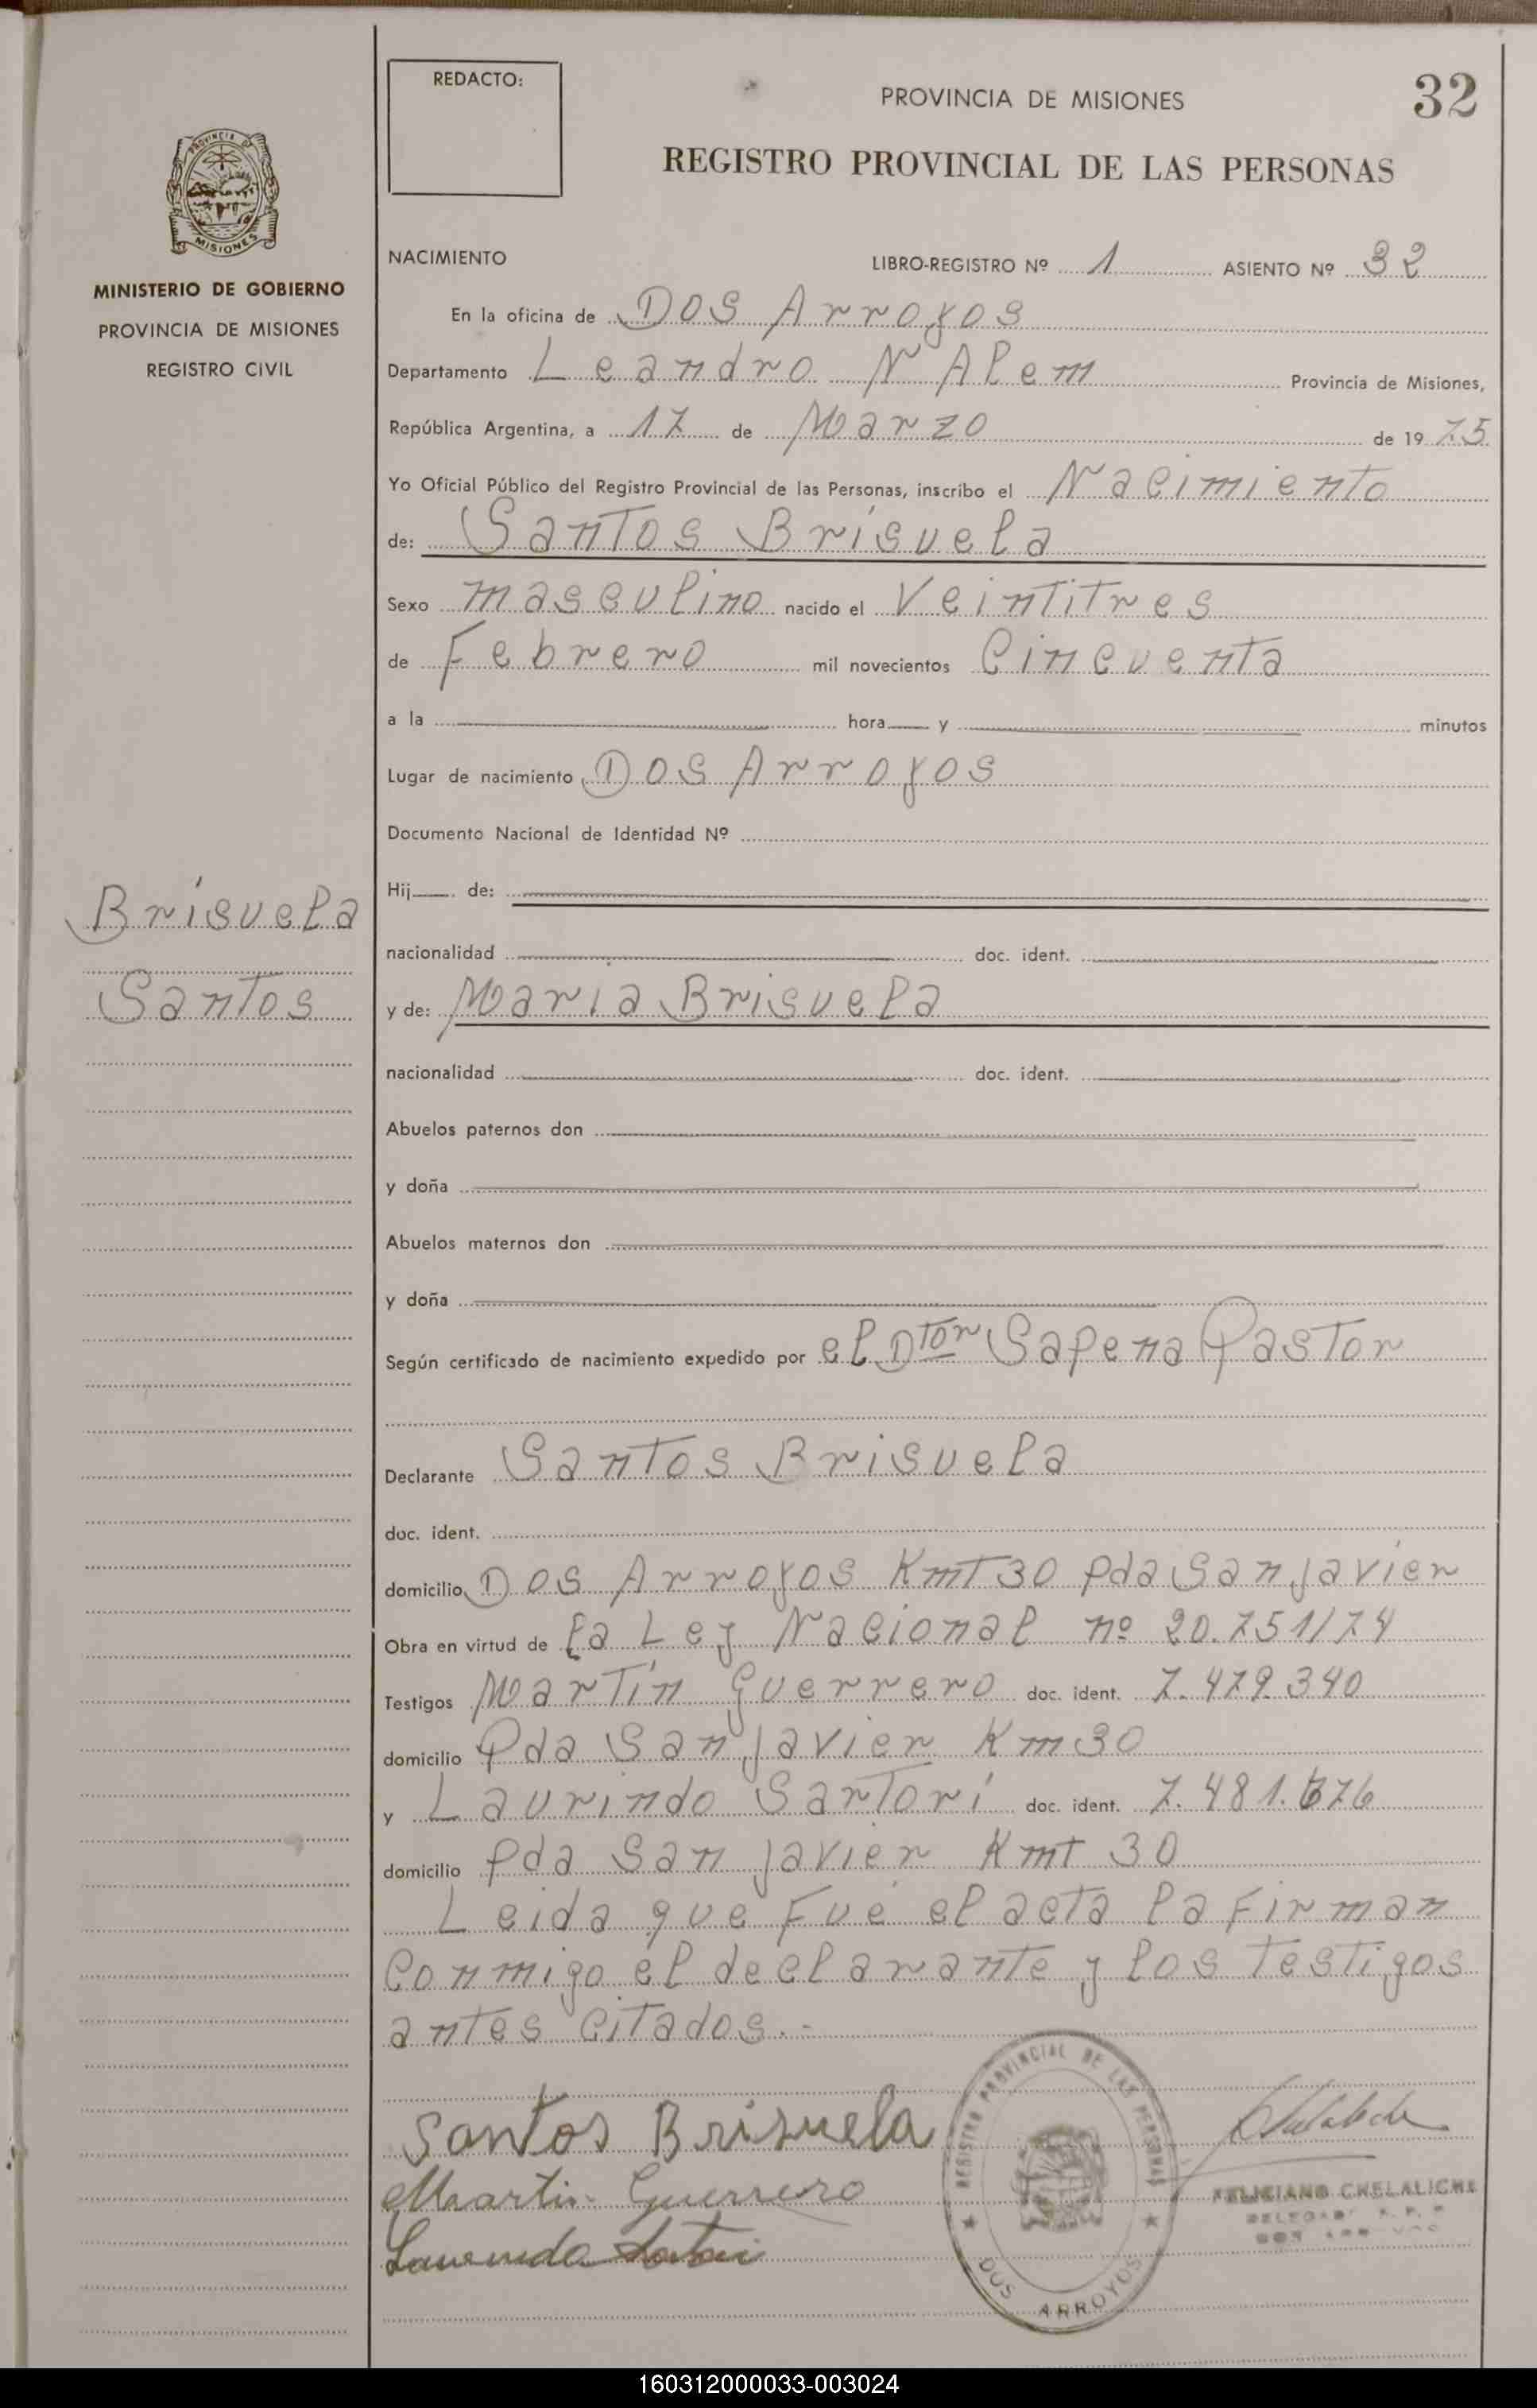 REDACTO:
PROVINCIA DE MISIONES
32
REGISTRO PROVINCIAL DE LAS PERSONAS
PROVINCIA DE
MISIONES
MINISTERIO DE GOBIERNO
PROVINCIA DE MISIONES
REGISTRO CIVIL
NACIMIENTO LIBRO-REGISTRO Nº 1 ASIENTO Nº 32
En la oficina de Dos Arroyos
Departamento Leandro N Alem Provincia de Misiones,
República Argentina, a 17 de Marzo de 1975
Yo Oficial Público del Registro Provincial de las Personas, inscribo el Nacimiento
de: Santos Brisuela
Sexo masculino nacido el Veintitres
de Febrero mil novecientos Cincuenta
a la hora y minutos
Lugar de nacimiento Dos Arroyos
Documento Nacional de Identidad Nº
Hij de:
Brisuela
nacionalidad doc. ident.
Santos
y de: Maria Brisuela
nacionalidad doc. ident.
Abuelos paternos don
y doña
Abuelos maternos don
y doña
Según certificado de nacimiento expedido por el Dtor Sapena Pastor
Declarante Santos Brisuela
doc. ident.
domicilio Dos Arroyos Kmt 30 Pda San Javier
Obra en virtud de la Ley Nacional nº 20.751/74
Testigos Martín Guerrero doc. ident. 7.479.340
domicilio Pda San Javier Km 30
y Laurindo Sartori doc. ident. 7.481.676
domicilio Pda San Javier Kmt 30
Leida que Fué el acta la Firman
Conmigo el declarante y los testigos
antes citados.-
Santos Brisuela
Martin Guerrero
REGISTRO PROVINCIAL DE LAS PERSONAS
DOS ARROYOS
FELICIANO CHELALICHE
DOS ARROYOS
160312000033-003024